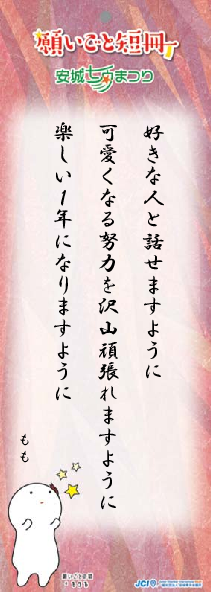 願いごと短冊
安城七夕まつり
好きな人と話せますように
可愛くなる努力を沢山頑張れますように
楽しい1年になりますように
もも
願いごと短冊
JCI